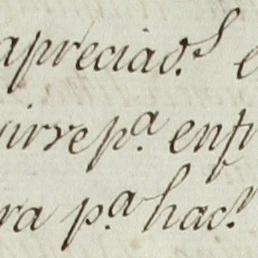 apreciad.s e
irse p.a enfr
ra p.a hac.r